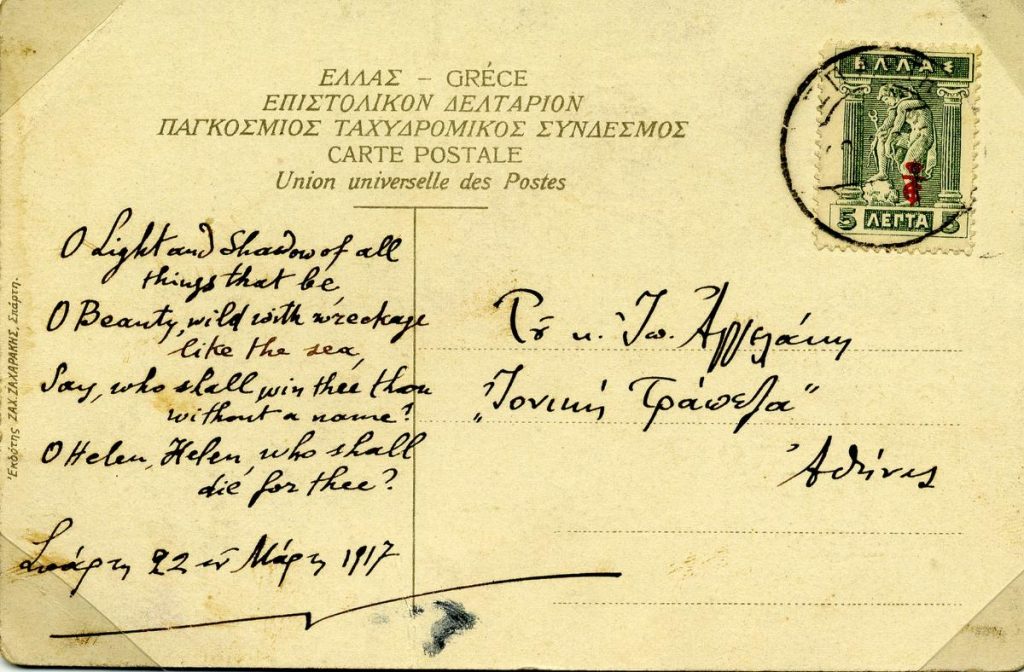 ΕΛΛΑΣ – GRÉCE
ΕΠΙΣΤΟΛΙΚΟΝ ΔΕΛΤΑΡΙΟΝ
ΠΑΓΚΟΣΜΙΟΣ ΤΑΧΥΔΡΟΜΙΚΟΣ ΣΥΝΔΕΣΜΟΣ
CARTE POSTALE
Union universelle des Postes
ΕΛΛΑΣ
5 ΛΕΠΤΑ 5
Ἐκδότης ΖΑΧ. ΖΑΧΑΡΑΚΗΣ, Σπάρτη.
O Light and Shadow of all
things that be
O Beauty, wild with wreckage
like the sea,
Say, who shall win thee thou
without a name?
O Helen, Helen, who shall
die for thee?
Σπάρτη 22 Μάρτη 1917
κ. Ἰω. Ἀγγελάκη
„Ἰονική Τράπεζα"
Ἀθήνες